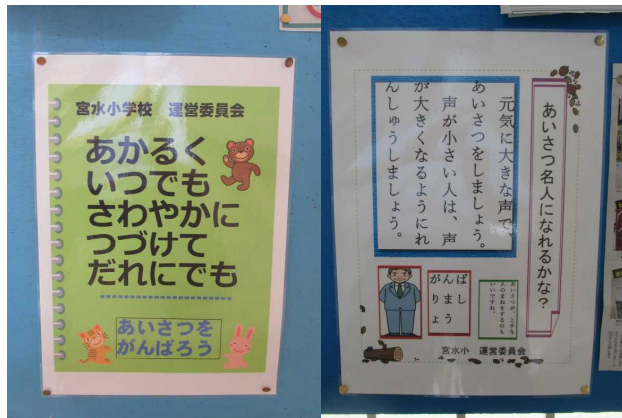 宮水小学校 運営委員会
あかるく
いつでも
さわやかに
つづけて
だれにでも
あいさつを
がんばろう
あいさつ名人になれるかな？
元気に大きな声で、
あいさつをしましょう。
声が小さい人は、声
が大きくなるようにれ
んしゅうしましょう。
あいさつが、上手な
人のまねをするのも
いいですね。
ばし
んまう
がりょ
宮水小 運営委員会